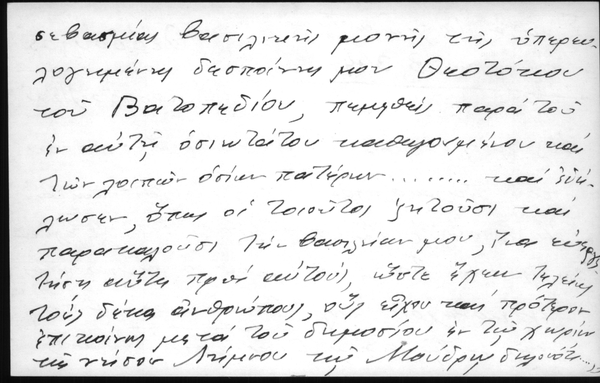 σεβασμίας βασιλικῆς μονῆς τῆς ὑπερευ-
λογημένης δεσποίνης μου Θεοτόκου
τοῦ Βατοπεδίου, πεμφθεὶς παρὰ τοῦ
ἐν αὐτῇ ὁσιωτάτου καθηγουμένου καὶ
τῶν λοιπῶν ὁσίων πατέρων ......... καὶ ἐδή-
λωσεν, ὅπως οἱ τοιοῦτοι ζητοῦσι καὶ
παρακαλοῦσι τὴν βασιλείαν μου, ἵνα εὐεργε
τήσῃ αὕτη πρὸς αὐτούς, ὥστε ἔχειν τελείως
τοὺς δέκα ἀνθρώπους, οὓς εἶχον καὶ πρότερον
ἐπικοίνης μετὰ τοῦ δημοσίου ἐν τῷ χωρίῳ
τῆς νήσου Λήμνου τῆς Μούδρου δηλονότι ....,